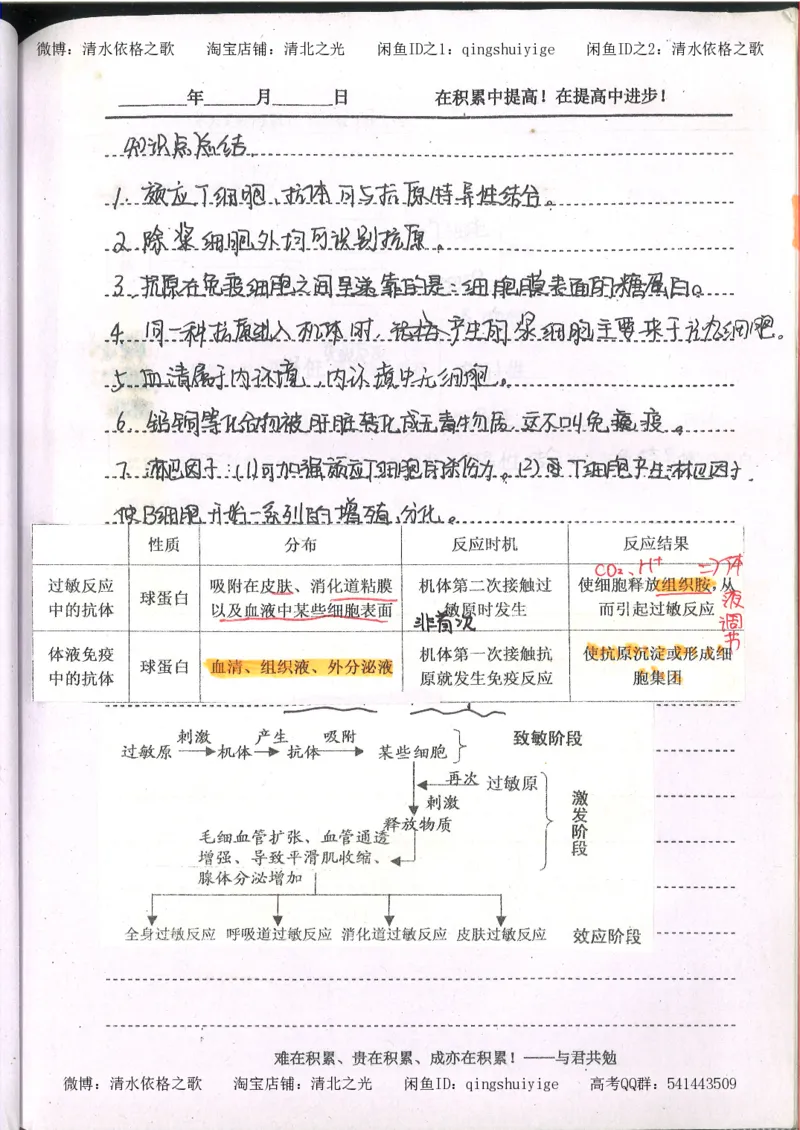 微博：清水依格之歌 淘宝店铺：清北之光 闲鱼ID之1：qingshuiyige 闲鱼ID之2：清水依格之歌
年 月 日 在积累中提高！在提高中进步！
知识点总结
1. 效应T细胞、抗体可与抗原特异性结合。
2. 除浆细胞外均可识别抗原。
3. 抗原在免疫细胞之间呈递靠的是：细胞膜表面的糖蛋白。
4. 同一种抗原进入机体时，产生的浆细胞主要来于记忆细胞。
5. 血清属于内环境，内环境中无细胞。
6. 铅铜等化合物被肝脏转化成无毒物质，这不叫免疫。
7. 淋巴因子：(1)可加强效应T细胞的杀伤力。(2)再T细胞产生淋巴因子.
使B细胞开始一系列的增殖,分化。
性质 分布 反应时机 反应结果
CO₂、H⁺ ⇒体液调节
过敏反应中的抗体 球蛋白 吸附在皮肤、消化道粘膜以及血液中某些细胞表面 机体第二次接触过敏原时发生 使细胞释放组织胺，从而引起过敏反应
非首次
体液免疫中的抗体 球蛋白 血清、组织液、外分泌液 机体第一次接触抗原就发生免疫反应 使抗原沉淀或形成细胞集团
刺激 产生 吸附
过敏原 机体 抗体 某些细胞 致敏阶段
再次 过敏原
刺激
激发阶段
释放物质
毛细血管扩张、血管通透
增强、导致平滑肌收缩、
腺体分泌增加
全身过敏反应 呼吸道过敏反应 消化道过敏反应 皮肤过敏反应 效应阶段
难在积累、贵在积累、成亦在积累！——与君共勉
微博：清水依格之歌 淘宝店铺：清北之光 闲鱼ID：qingshuiyige 高考QQ群：541443509